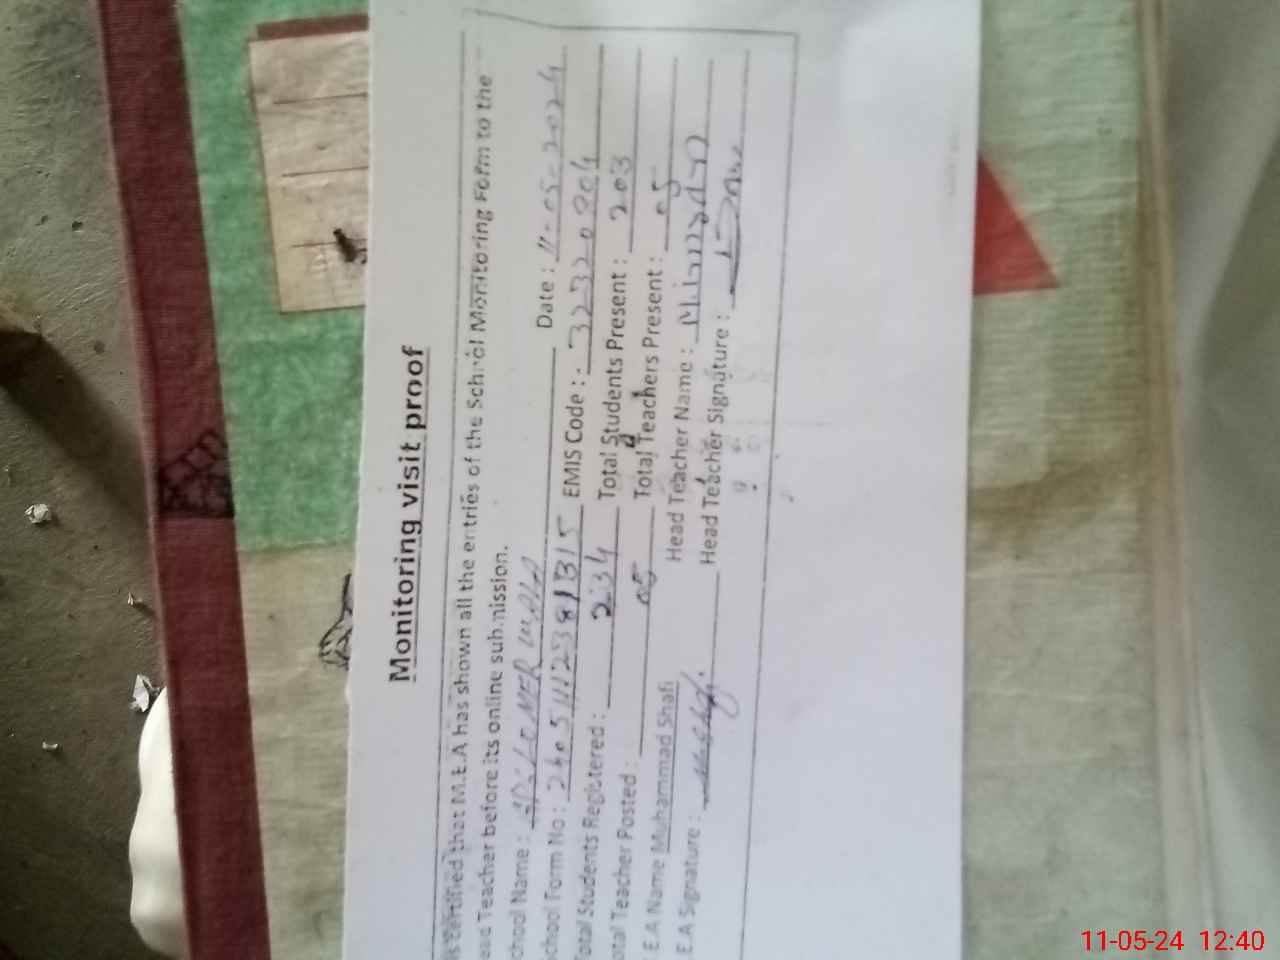 Monitoring visit proof
is certified that M.E.A has shown all the entries of the School Monitoring Form to the
ead Teacher before its online submission.
chool Name : GPS LONER WALA Date : 11-05-2024
chool Form No : 24051112381315 EMIS Code : 32320804
otal Students Registered : 234 Total Students Present : 203
otal Teacher Posted : 05 Total Teachers Present : 05
E.A Name Muhammad Shafi Head Teacher Name :
E.A Signature : Head Teacher Signature :
11-05-24 12:40